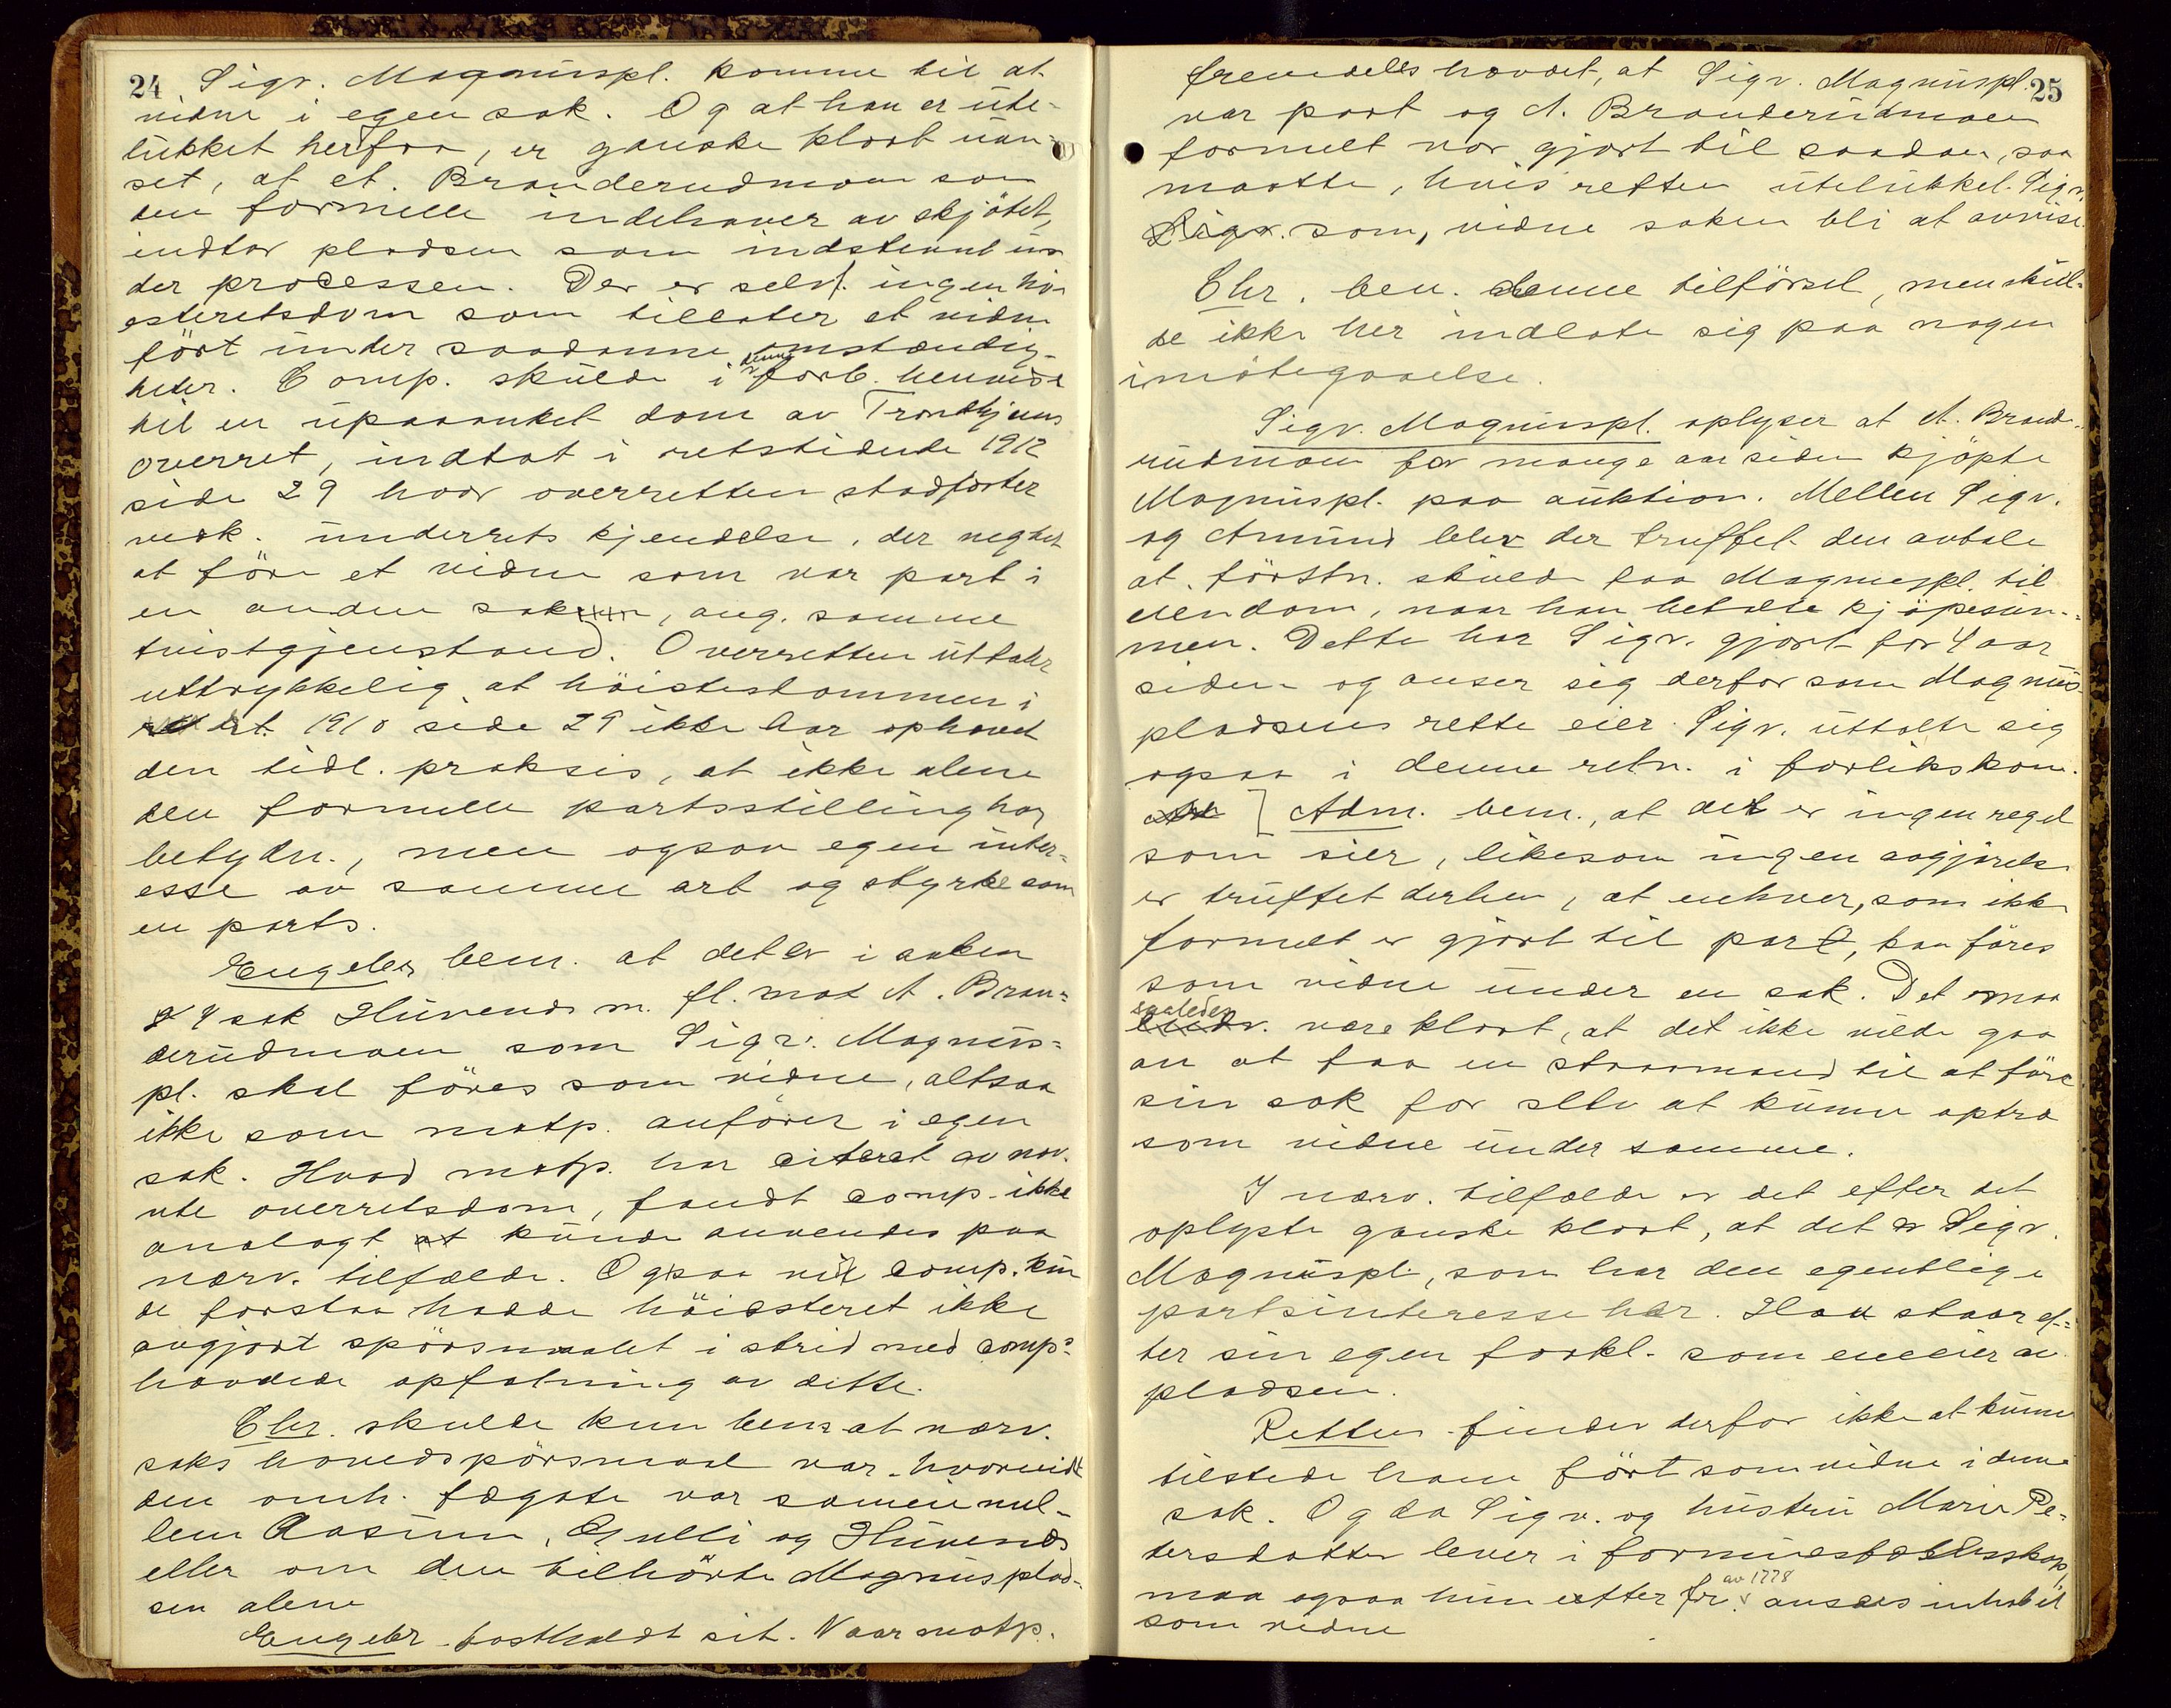 24 Sigv. Magnuspl. komme til at
vidne i egen sak. Og at han er ute-
lukket herfra, er ganske klart uan-
set, at et. Branderudmoen som
den formelle indehaver av skjötet,
indtar pladsen som indstevnt un-
der processen. Der er selvf. ingen hö-
iesteretsdom som tillater et vidne
fört under saadanne omstændig-
heter. Comp. skulde i denne forb. henvise
til en upaaanket dom av Trondhjems
overret, indtat i retstidende 1912
side 29 hvor overretten stadfæster
vedk. underrets kjendelse, der negtet
at före et vidne som var part i
en anden sak, ang. samme
tvistgjenstand. Overretten uttaler
uttrykkelig at höiestedommen i
rt. 1910 side 29 ikke har ophævet
den tidl. praksis, at ikke alene
den formelle partsstilling har
betydn., men ogsaa egen inter-
esse av samme art og styrke som
en parts.
Engebr bem. at det er i saken
4 sak Huvends m. fl. mot A. Bran-
derudmoen som Sigv. Magnus-
pl. skal föres som vidne, altsaa
ikke som motp. anförer i egen
sak. Hvad motp. har citeret av næv-
nte overretsdom, fandt comp. ikke
analogt at kunde anvendes paa
nærv. tilfælde. Ogsaa vidt comp. kun-
de forstaa hadde höiesteret ikke
avgjort spörsmaalet i strid med comp.
hævdede opfatning av dette.
Chr. skulde kun bem. at nærv.
saks hovedspörsmaal var hvorvidt
den omh. fægate var sameie mel-
lem Aasum, Gulli og Huvends
eller om den tilhörte Magnusplad-
sen alene
Engebr fastholdt sit. Naar motp.
fremdeles hævdet, at Sigv. Magnuspl. 25
var part og A. Branderudmoen
formelt var gjort til saadan, saa
maatte, hvis retten utelukket Sigv.
Sigv. som vidne saken bli at avvise.
Chr. bem. denne tilförsel, men skul-
de ikke her indlate sig paa nogen
imötegaaelse.
Sigv. Magnuspl. oplyser at A. Brande-
rudmoen for mange aar siden kjöpte
Magnuspl. paa auktion. Mellem Sigv.
og Amund blev der truffet den avtale
at förstn. skulde faa Magnuspl. til
eiendom, naar han betalte kjöpesum-
men. Dette har Sigv. gjort for 4 aar
siden og anser sig derfor som Magnus-
pladsens rette eier. Sigv. uttalte sig
ogsaa i denne retn. i forlikskom.
[Adm. bem., at det er ingen regel
som sier, likesom ingen avgjörelse
er truffet derhen, at enhver, som ikke
formelt er gjort til part, kan föres
som vidne under en sak. Det maa
saaledes være klart, at det ikke vilde gaa
an at faa en straamand til at före
sin sak for selv at kunne optræ
som vidne under samme.
I nærv. tilfælde er det efter det
oplyste ganske klart, at det er Sigv.
Magnuspl., som har den egentlige
partsinteresse her. Han staar ef-
ter sin egen forkl. som eneeier av
pladsen.
Retten finder derfor ikke at kunne
tilstede ham fört som vidne i denne
sak. Og da Sigv. og hustru Marie Pe-
dersdatter lever i formuesfællesskap,
maa ogsaa hun efter fr. av 1778 ansees inhabil
som vidne